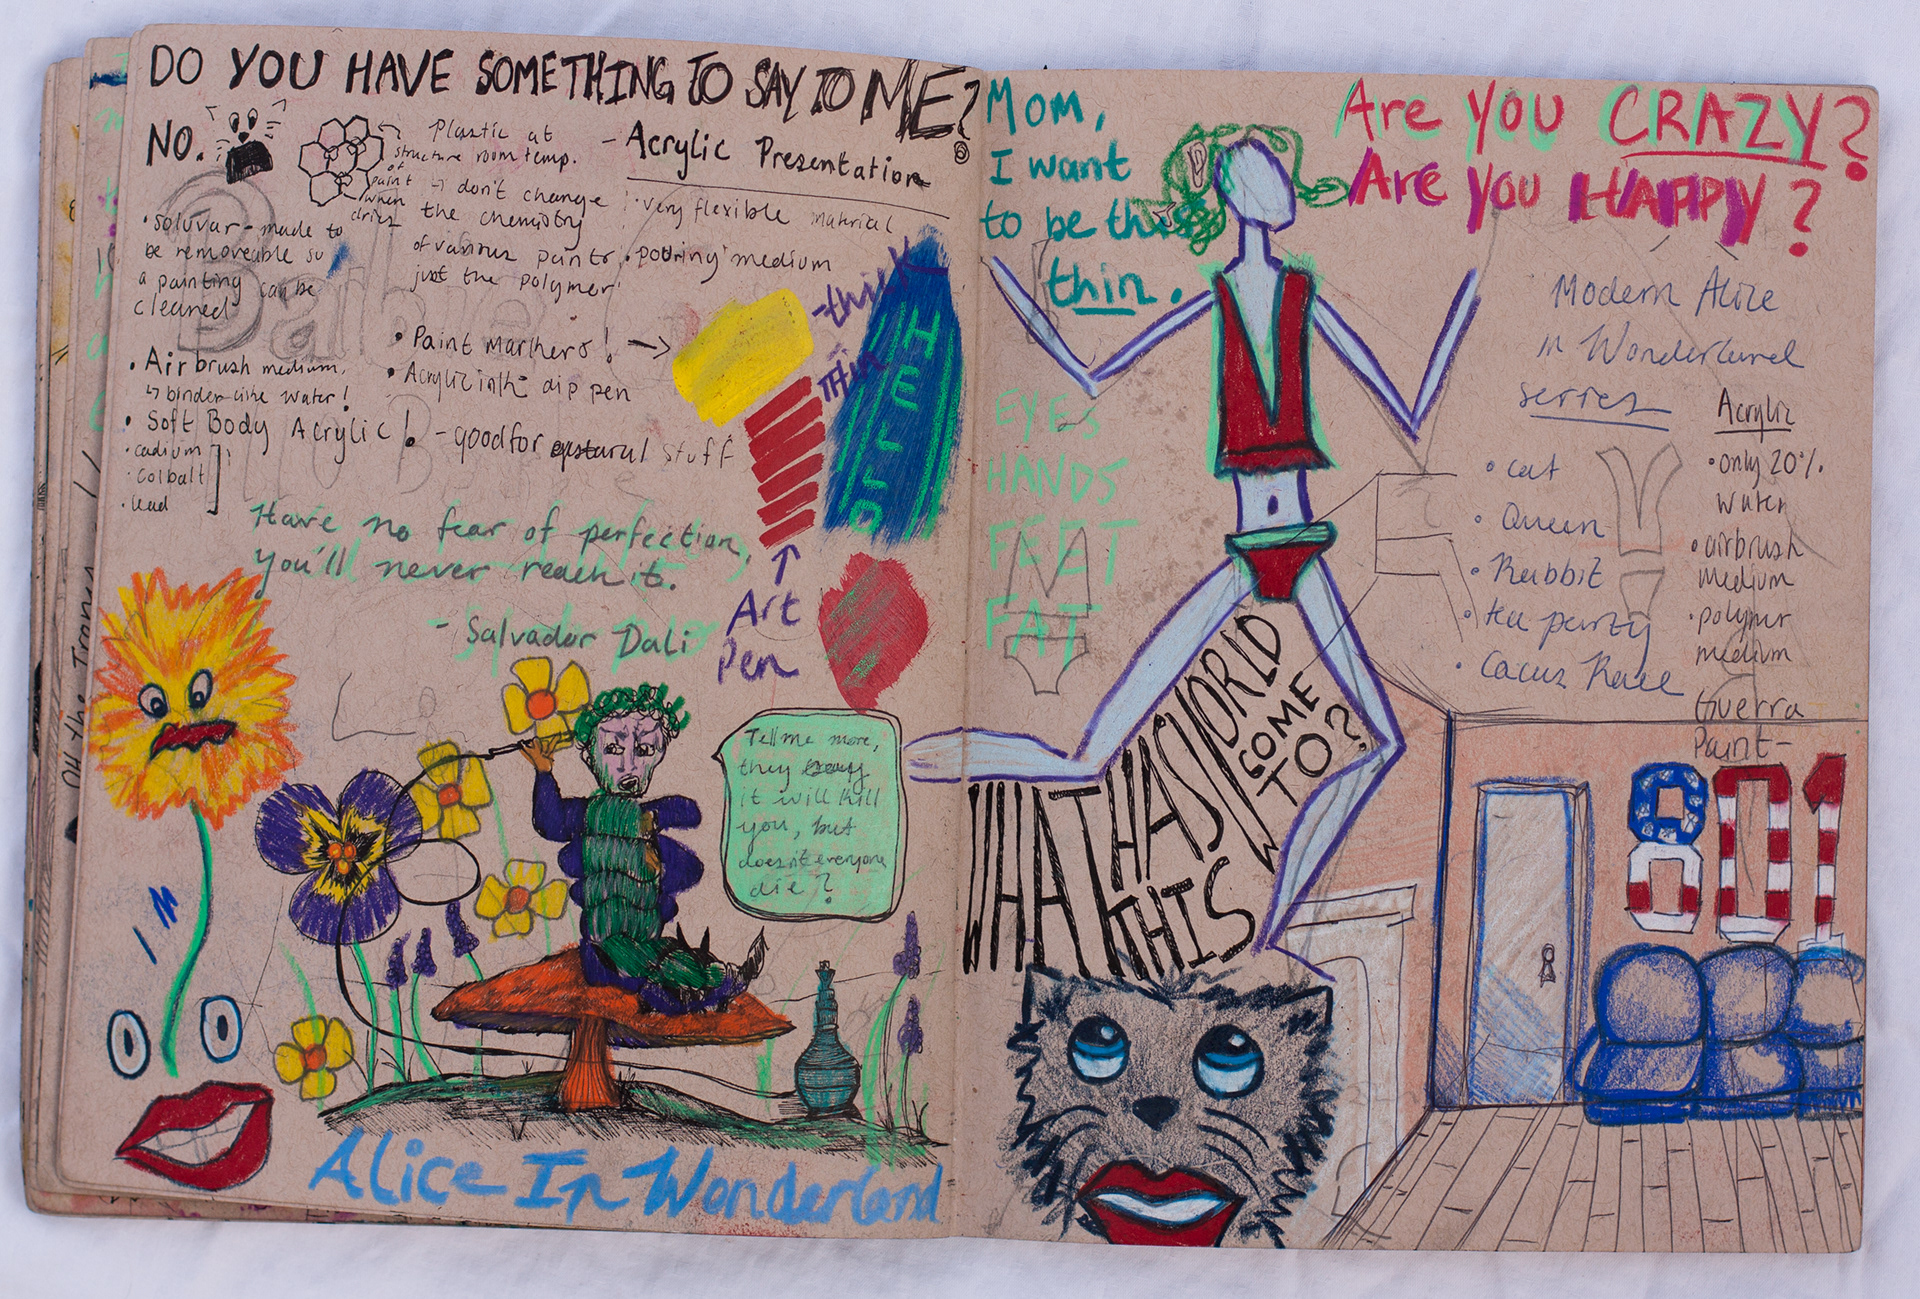 DO YOU HAVE SOMETHING TO SAY TO ME?
NO.
Plastic at
room temp.
structure
of
paint
when
dries
↳ don't change
the chemistry
of various paints,
just the polymer
- Acrylic Presentation
• very flexible material
• pouring medium
• soluvar - made to
be removeable so
a painting can be
cleaned
• Airbrush medium,
↳ binder like water!
• Soft Body Acrylic! - good for gestural stuff
• cadium
• Colbalt
• lead
• Paint Markers! →
• Acrylic ink dip pen
- thick
thin
HELLO
Art
Pen
Have no fear of perfection,
you'll never reach it.
- Salvador Dali
Tell me more,
they say
it will kill
you, but
doesn't everyone
die?
Alice In Wonderland
Mom,
I want
to be this
thin.
Are you CRAZY?
Are you HAPPY?
EYES
HANDS
FEET
FAT
Modern Alice
in Wonderland
series
• cat
• Queen
• Rabbit
• tea party
• Cacus Race
Acrylic
• only 20%
water
• airbrush
medium
• polymer
medium
Guerra
Paint-
WHAT HAS THIS WORLD
COME
TO?
801
OH the Trones